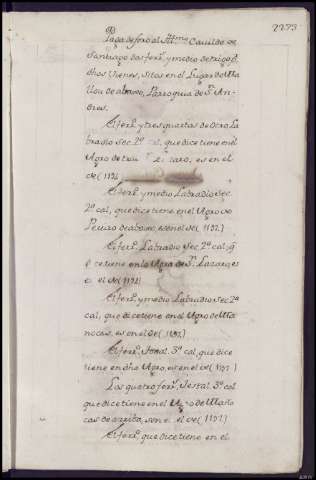 2293
Paga de foro al Illmo Cavildo de
Santiago dos ferrs. y medio de trigo p.r
dhos vienes, sitos en el Lugar de
de abaxo, Parroquia de Sn. An-
dres.
El ferr. y tres quartas de otro La
bradio Sec. 2ª cal, que dice tiene en el
Agro de es en el
de (1192
El ferr. y medio Labradio Sec.
2ª cal, que dice tiene en el Agro de
de abaxo, es en el de (1192)
El ferr. Labradio Sec. 2ª cal, q.
e. dice tiene en la Agra de Sn. Lazaro, es
e. el de (1192)
El ferr. y medio Labradio Sec. 2ª
cal, que dice tiene en el Agro de Ma
nocas, es en el de (1192)
El ferr. Jestal 3ª cal, que dice
tiene en dho Agro, es en el de (1192)
Los quatro ferr. Jestal 3ª cal
que dice tiene en el Agro de Mano
cas de arriba, son e. el de (1192)
El ferr. que dice tiene en el